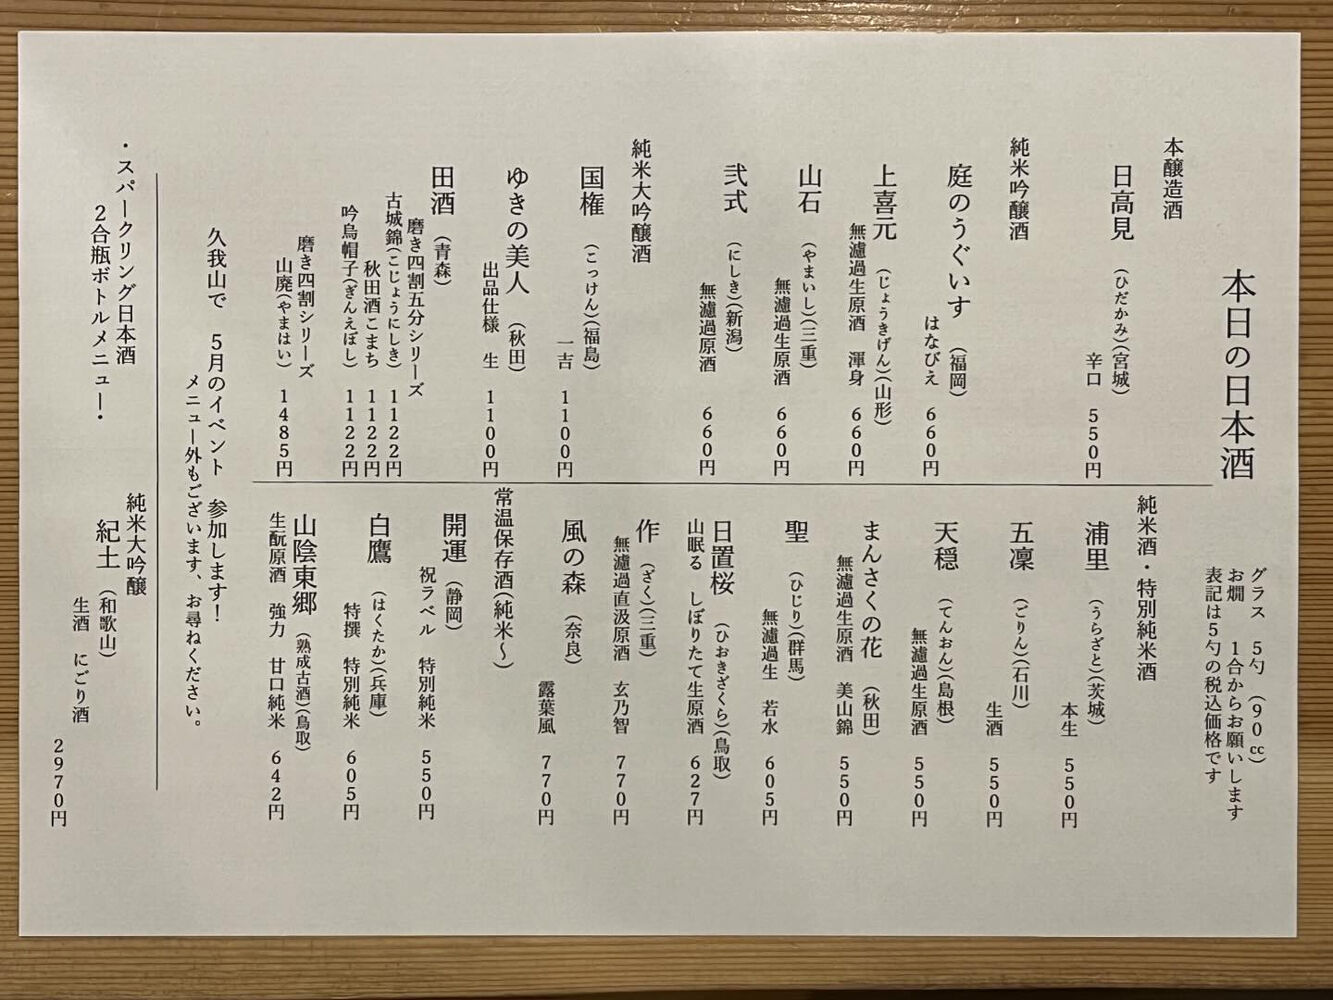 本日の日本酒
グラス 5勺 (90㏄)
お燗 1合からお願いします
表記は5勺の税込価格です
本醸造酒
日高見 (ひだかみ)(宮城)
辛口 550円
純米吟醸酒
庭のうぐいす (福岡)
はなびえ 660円
上喜元 (じょうきげん)(山形)
無濾過生原酒 渾身 660円
山石 (やまいし)(三重)
無濾過生原酒 660円
弐式 (にしき)(新潟)
無濾過原酒 660円
純米大吟醸酒
国権 (こっけん)(福島)
一吉 1100円
ゆきの美人 (秋田)
出品仕様 生 1100円
田酒 (青森)
磨き四割五分シリーズ
古城錦(こじょうにしき) 1122円
秋田酒こまち 1122円
吟烏帽子(ぎんえぼし) 1122円
磨き四割シリーズ
山廃(やまはい) 1485円
純米酒・特別純米酒
浦里 (うらざと)(茨城)
本生 550円
五凛 (ごりん)(石川)
生酒 550円
天穏 (てんおん)(島根)
無濾過生原酒 550円
まんさくの花 (秋田)
無濾過生原酒 美山錦 550円
聖 (ひじり)(群馬)
無濾過生 若水 605円
日置桜 (ひおきざくら)(鳥取)
山眠る しぼりたて生原酒 627円
作 (ざく)(三重)
無濾過直汲原酒 玄乃智 770円
風の森 (奈良)
露葉風 770円
常温保存酒(純米～)
開運 (静岡)
祝ラベル 特別純米 550円
白鷹 (はくたか)(兵庫)
特撰 特別純米 605円
山陰東郷 (熟成古酒)(鳥取)
生酛原酒 強力 甘口純米 642円
久我山で 5月のイベント 参加します！
メニュー外もございます、お尋ねください。
・スパークリング日本酒
2合瓶ボトルメニュー・
純米大吟醸
紀土 (和歌山)
生酒 にごり酒
2970円